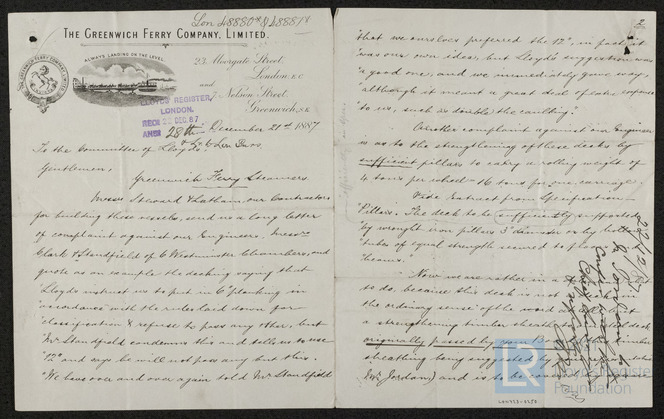 Lon 48880 & 48881
THE GREENWICH FERRY COMPANY, LIMITED.
ALWAYS LANDING ON THE LEVEL.
THE GREENWICH FERRY COMPANY LIMITED
23, Moorgate Street,
London. E.C.
and
Nelson Street,
Greenwich, S.E.
LLOYDS REGISTER,
LONDON.
RECD 22 DEC. 87
ANSD 28th
December 21st 1887
To the Committee of Lloyds
Gentlemen,
Greenwich Ferry Steamers
Messrs Steward & Latham, our Contractors
for building these vessels, send us a long letter
of complaint against our Engineers, Messrs
Clark & Standfield of 6 Westminster Chambers, and
quote as an example the decking saying that
"Lloyds instruct us to put in 6" planking in
"accordance with the rules laid down for
"classification & refuse to pass any other, but
"Mr Standfield condemns this and tells us to use
"12" and says he will not pass any but this.
"We have over and over again told Mr Standfield
2
"that we ourselves preferred the 12", in fact, it
"was our own idea, but Lloyds suggestion was
"a good one, and we immediately gave way,
"although it meant a great deal of extra expense
"to us, such as double the caulking".
Another complaint against our Engineers
is as to the strengthening of these decks by
sufficient pillars to carry a rolling weight of
4 tons per wheel = 16 tons for one carriage.
Vide Extract from Specification
"Pillars. The deck to be sufficiently supported
"by wrought iron pillars 3" diameter or by
"tubes of equal strength secured to
"beams".
Now we are rather in a
to do, because this deck is not
the ordinary sense of the word
a strengthening timber
originally passed by your
sheathing being suggested by
(Mr Jordan) and is to be
LR
Foundation
LON923-0250